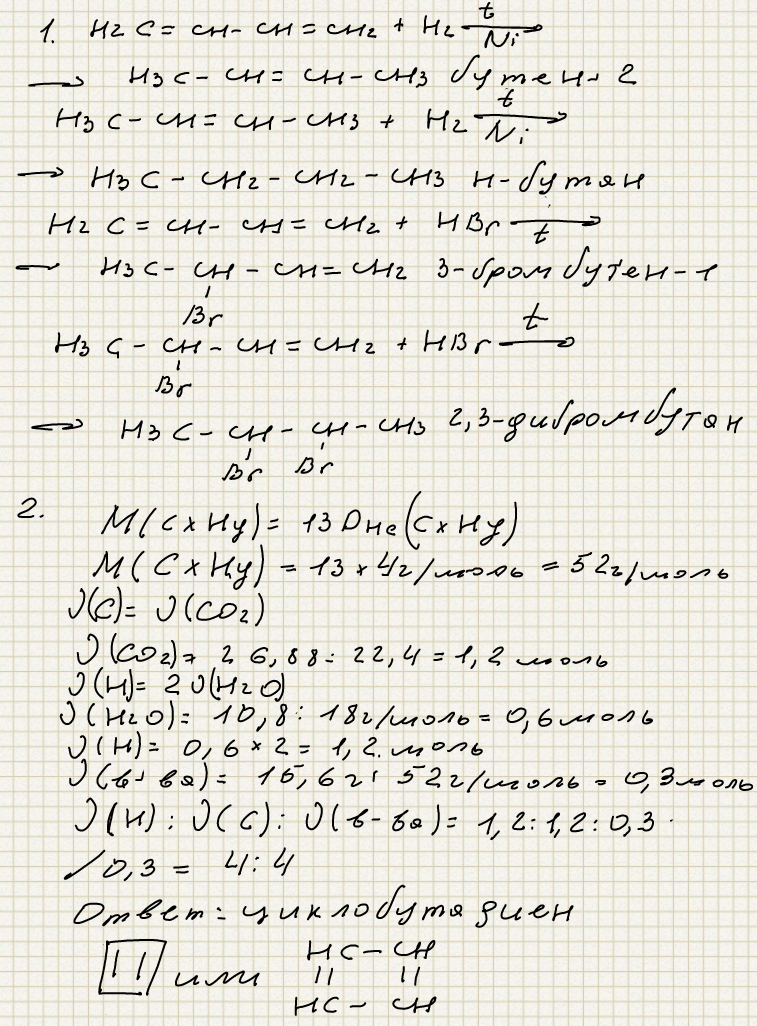 1. H2C=CH-CH=CH2 + H2 t→Ni
→ H3C-CH=CH-CH3 бутен-2
H3C-CH=CH-CH3 + H2 t→Ni
→ H3C-CH2-CH2-CH3 н-бутан
H2C=CH-CH=CH2 + HBr →t
→ H3C-CH-CH=CH2 3-бромбутен-1
Br
H3C-CH-CH=CH2 + HBr t→
Br
→ H3C-CH-CH-CH3 2,3-дибромбутан
Br Br
2. M(CxHy) = 13 DHe(CxHy)
M(CxHy) = 13 × 4г/моль = 52г/моль
ν(C) = ν(CO2)
ν(CO2) = 26,88 : 22,4 = 1,2 моль
ν(H) = 2ν(H2O)
ν(H2O) = 10,8 : 18г/моль = 0,6 моль
ν(H) = 0,6 × 2 = 1,2 моль
ν(в-ва) = 15,6г : 52г/моль = 0,3 моль
ν(H) : ν(C) : ν(в-ва) = 1,2 : 1,2 : 0,3
/ 0,3 = 4 : 4
Ответ: циклобутадиен
или
HC - CH
|| ||
HC - CH